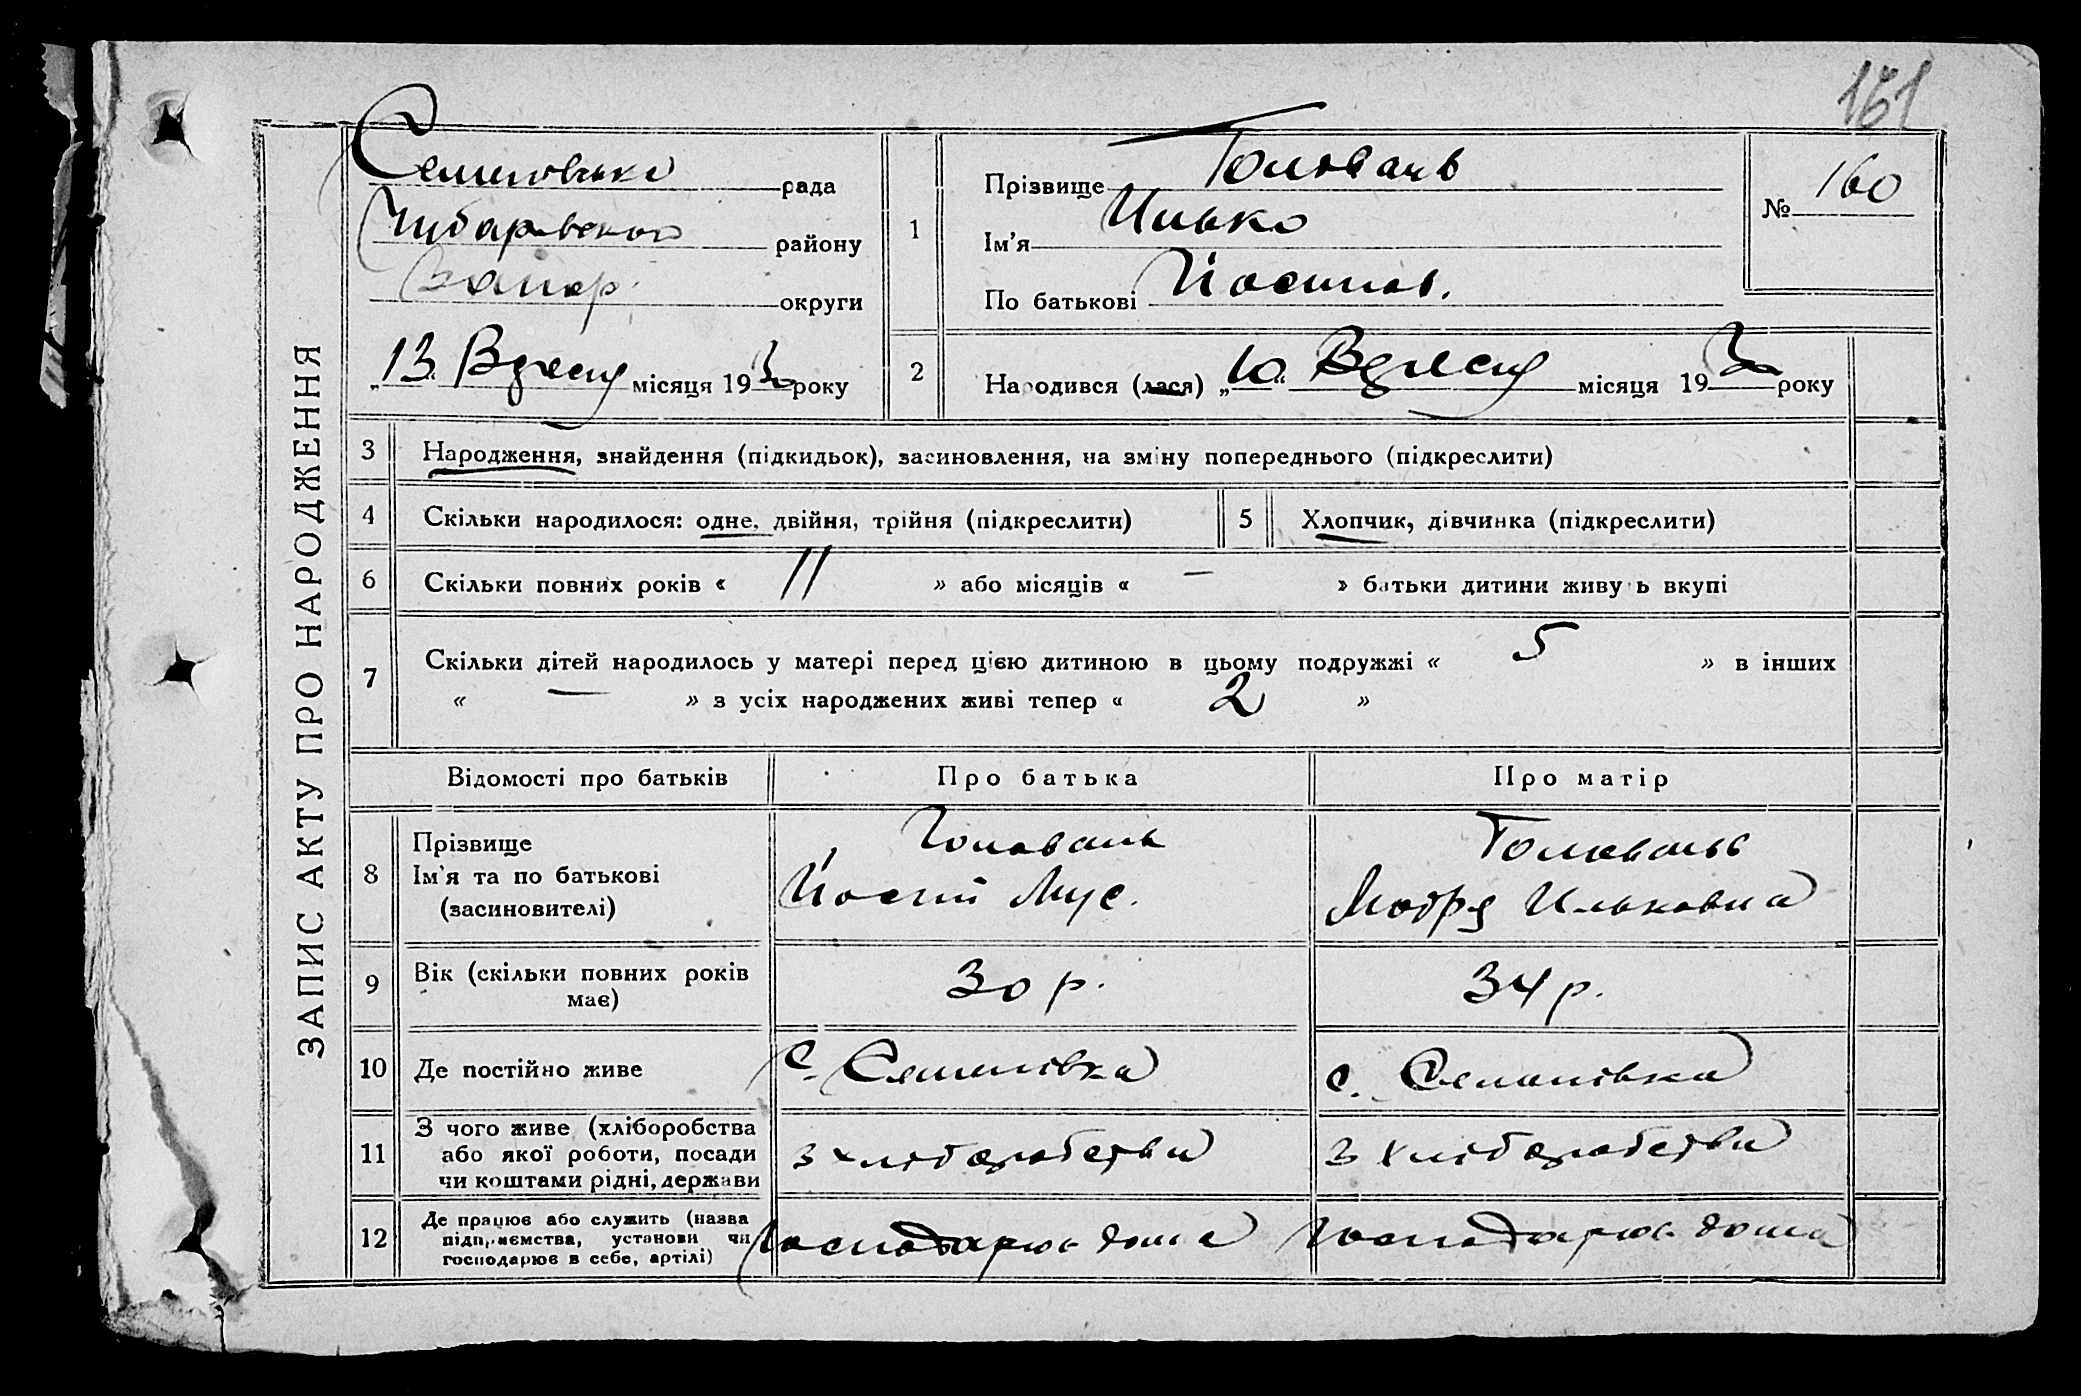 161
ЗАПИС АКТУ ПРО НАРОДЖЕННЯ
рада
району
Запор. округи
„13“ Вересня місяця 1930 року
1
Прізвище Головань
Ім'я Илько
По батькові Йосипов.
№ 160
2
Народився (лася) „10“ Вересня місяця 1930 року
3 Народження, знайдення (підкидьок), засиновлення, на зміну попереднього (підкреслити)
4 Скільки народилося: одне, двійня, трійня (підкреслити) 5 Хлопчик, дівчинка (підкреслити)
6 Скільки повних років « 11 » або місяців « — » батьки дитини живуть вкупі
7 Скільки дітей народилось у матері перед цією дитиною в цьому подружжі « 5 » в інших
« — » з усіх народжених живі тепер « 2 »
Відомості про батьків Про батька Про матір
8 Прізвище
Ім'я та по батькові
(засиновителі)
Головань
Йосип Мус.
Головань
Мотря Ильковна
9 Вік (скільки повних років
має)
30 р. 34 р.
10 Де постійно живе с. с.
11 З чого живе (хліборобства
або якої роботи, посади
чи коштами рідні, держави
з хліборобства з хліборобства
12 Де працює або служить (назва
підприємства, установи чи
господарює в себе, артілі)
господарює дома господарює дома